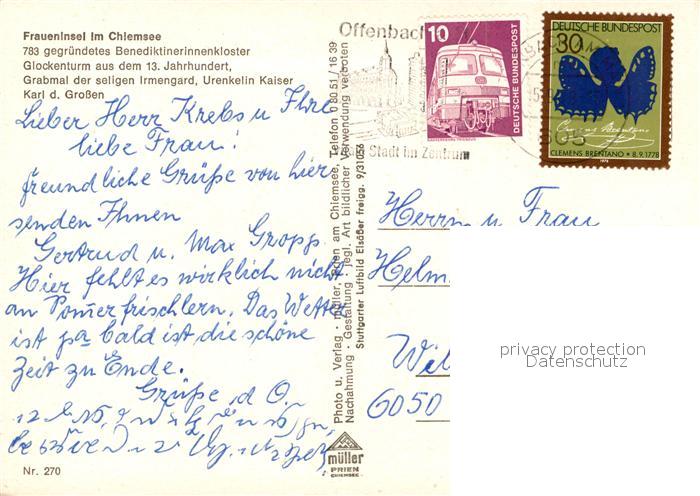 Fraueninsel im Chiemsee
783 gegründetes Benediktinerinnenkloster
Glockenturm aus dem 13. Jahrhundert,
Grabmal der seligen Irmengard, Urenkelin Kaiser
Karl d. Großen
Lieber Herr Krebs u Ihre
liebe Frau!
freundliche Grüße von hier
senden Ihnen
Gertrud u. Max Gropp.
Hier fehlt es wirklich nicht
an
Das Wetter
ist pa bald ist die schöne
Zeit zu Ende.
Grüße d O.
Nr. 270
Photo u. Verlag · müller, Prien am Chiemsee, Telefon 0 80 51 / 16 39
Nachahmung - Gestaltung - jegl. Art bildlicher Verwendung verboten
Stuttgarter Luftbild Elsäßer freigg. 9/31056
müller
PRIEN
CHIEMSEE
Offenbach
Stadt im Zentrum
10
DEUTSCHE BUNDESPOST
DEUTSCHE BUNDESPOST
30
Clemens Brentano
CLEMENS BRENTANO · 8.9.1778
1978
Herrn u Frau
Helm
Wil
6050
privacy protection
Datenschutz